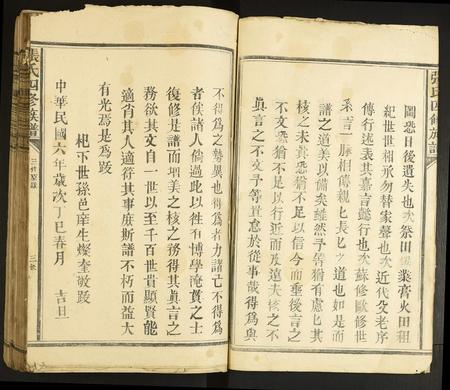 張氏四修族譜
圖恐日後遺失也次祭田業膏火田租
紀世世相承勿替家聲也次近代父老序
傳行述表其嘉言懿行也次蘇修歐修世
系言一脈相傳親也次道也如是而
譜之道美以備矣雖然予等猶有慮也其
核之未真恐猶不足以信今而垂後言之
不文恐猶不足以行近而及遠夫核之不
真言之不文予等實怠於從事哉得為與
不得為之勢異也得為者力諸不得為
者俟諸人倘過此以徃有博學淹貫之士
復修是譜而垂美之核之務得其真言之
務欲其文自一世以至千百世貴顯賢能
適肖其人適符其事庶斯譜不朽而益大
有光焉是為跋
中華民國六年歲次丁巳春月 吉旦
杞下世孫邑庠生燦奎敬跋
張氏四修族譜